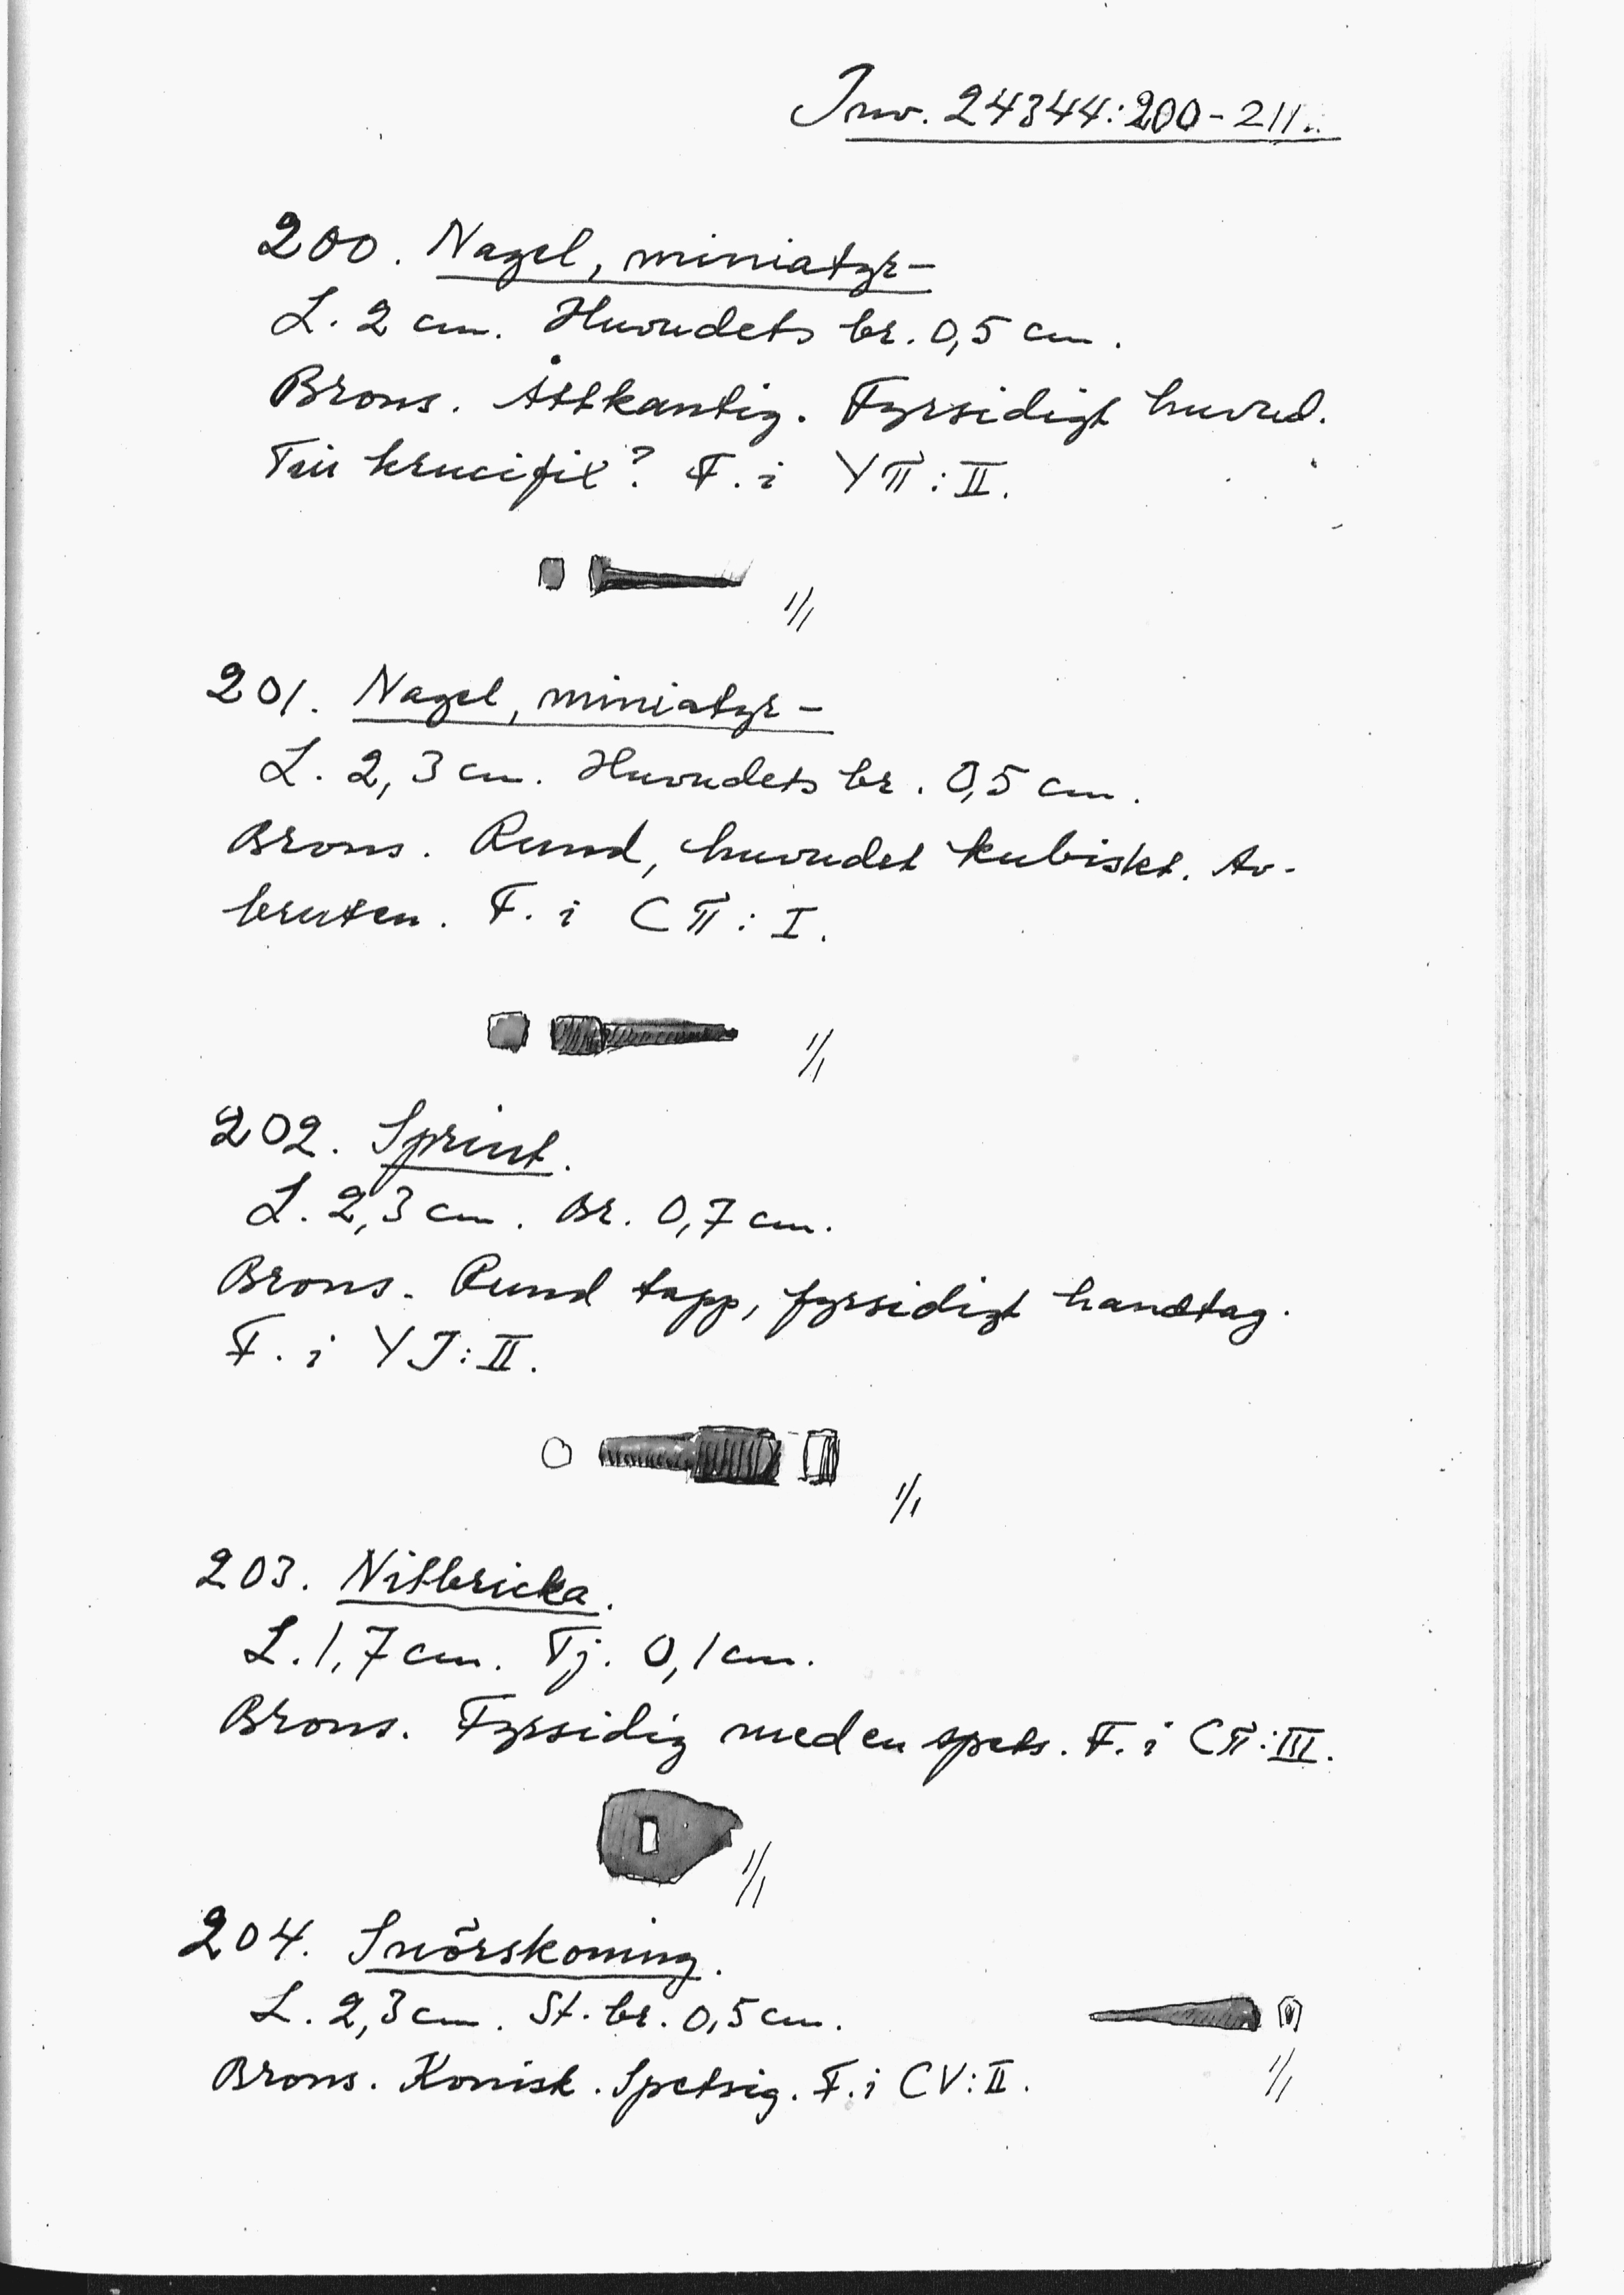 Inv. 24344:200-211.
200. Nagel, miniatyr-
L. 2 cm. Huvudets br. 0,5 cm.
Brons. Åttkantig. Fyrsidigt huvud.
Till krucifix? F. i YΠ:II.
1/1
201. Nagel, miniatyr-
L. 2,3 cm. Huvudets br. 0,5 cm.
Brons. Rund, huvudet kubiskt. Av-
bruten. F. i CΠ:I.
1/1
202. Sprint.
L. 2,3 cm. Br. 0,7 cm.
Brons. Rund tapp, fyrsidigt handtag.
F. i YJ:II.
1/1
203. Nitbricka.
L. 1,7 cm. Tj. 0,1 cm.
Brons. Fyrsidig med en spets. F. i CΠ:III.
1/1
204. Snörskoning.
L. 2,3 cm. St. br. 0,5 cm.
Brons. Konisk. Spetsig. F. i CV:II.
1/1